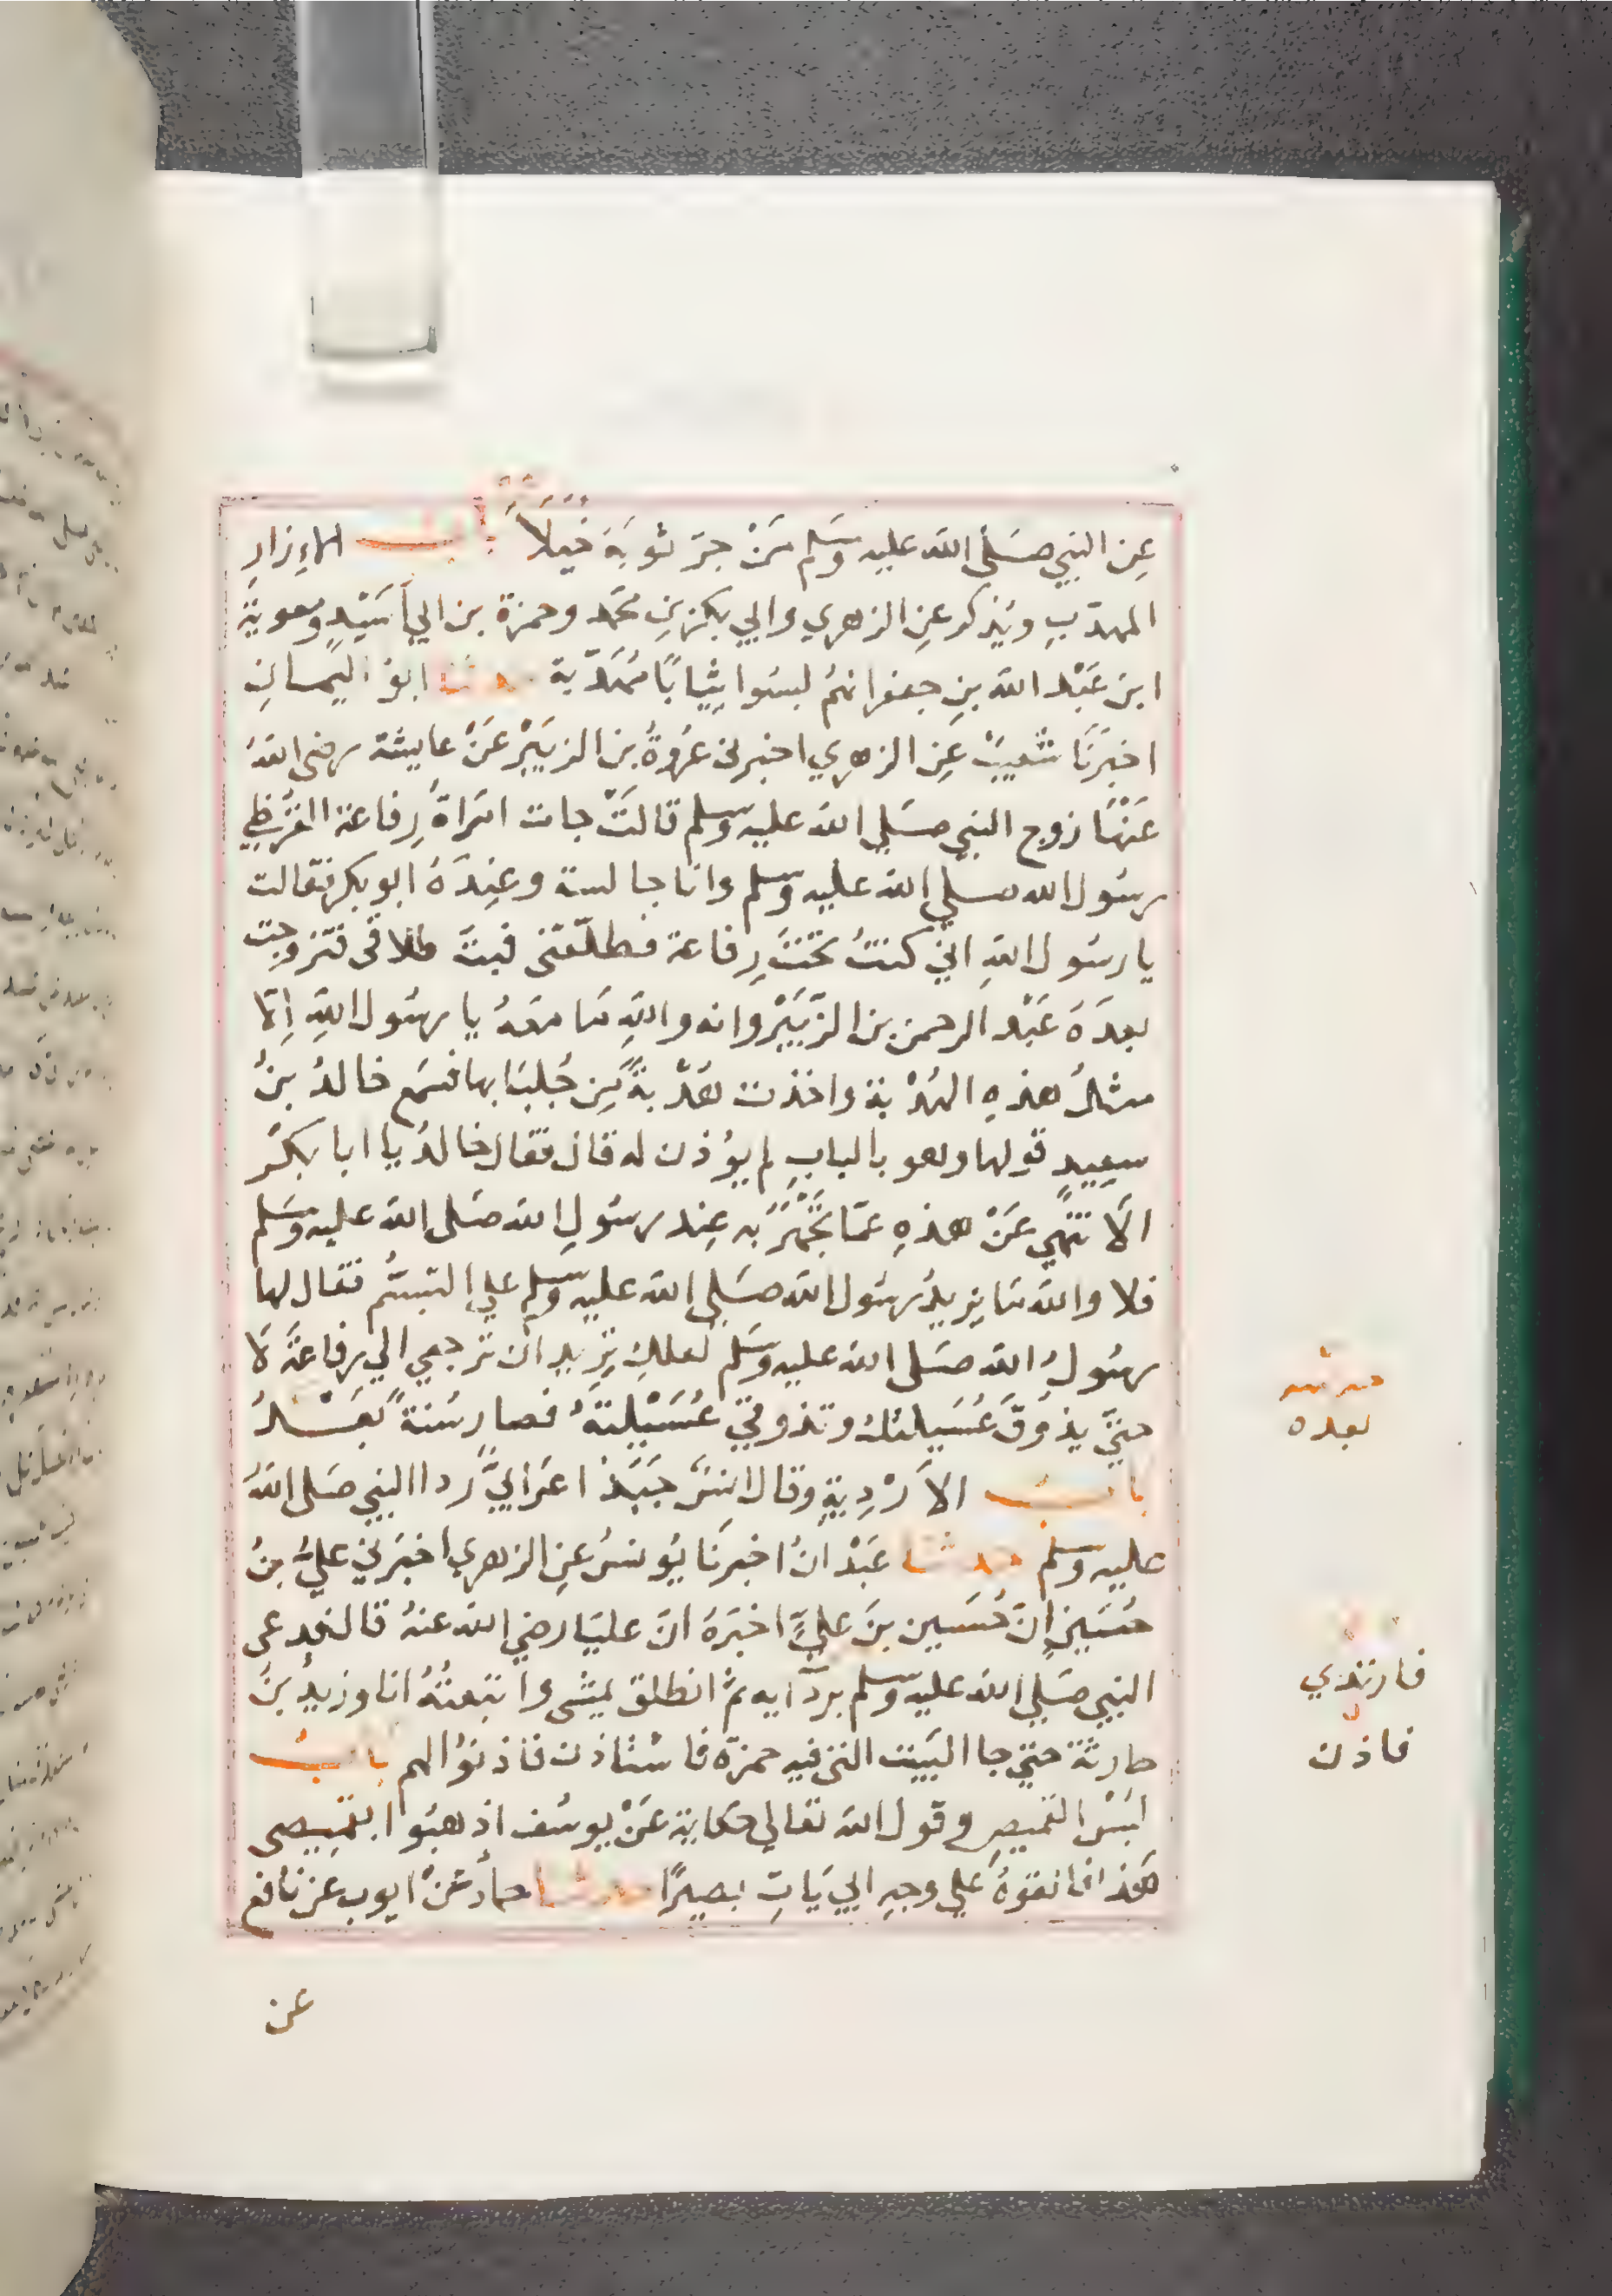 عن النبي صَلى الله عليه وسَلم مَنْ جرّ ثوبَهَ خُيَلَاَ بابُ الاِزارِ
المهدّبِ ويُذكر عنِ الزهري وابي بكر بنِ محمَّد وحمزة بن ابي اُسَيْدٍ ومعوية
ابن عَبْد الله بنِ جعفر انهمُ لبسُوا ثِيَابًا مُهَدّبة حدثنا ابوُ اليَمانِ
اخبَرَنَا شُعيبْ عنِ الزهري اخبرنى عُرْوةُ بن الزبَيْر عَنْ عايشة رضى اللهُ
عَنْهَا زوج النبي صَلي الله عليه وسَلم قالتَْ جات امَراةُ رِفاعة القُرظِي
رسُول الله صلي الله عليه وسلم وانا جالسة وعِندَهُ ابو بكر فقالت
يا رسُول اللهِ اني كنتُ تحْتَ رِفاعة فطلّقنى فبتَّ طلاقى فتزوجت
بعدَهَ عَبْد الرحمن بن الزَّبَيْر وانه واللهِ مَا معَهُ يا رسُول اللهِ اِلّا
مثلُ هذهِ الهُدْبة واخذت هُدْبةً مِن جُلبَابها فسَمِع خالدُ بنُ
سعِيدٍ قولها وهو بالبابِ لم يؤُذن له قال فقال خالدُ يا ابا بكْر
الَا تنهي عَنْ هذهِ عمّا تجْهَرُ به عِند رسُولِ الله صَلى الله عليه وسَلم
فلا والله مَا يزيدُ رسُول الله صَلي الله عليه وسلم علي التبسُّم فقال لها
رسُولُ الله صَلى الله عليه وسَلم لعلكِ تريدِ ان ترجعي الي رفاعَةَ لَا
حتيَّ يذوُقَ عُسَيلتك وتذوقي عُسَيْلتهُ فصارسُنةً بَعْدُ
بابُ الارْدِيةِ وقال انسٌَ جَبَذَ اعرَابيٌّ ردا النبي صَلى اللهُ
عليه وسلم حدثنا عَبْدانُ اخبرَنَا يُونسُ عنِ الزهري اخبرَني عليُّ بنُ
حسَينٍ انّ حُسَين بنَ عليٍّ اخبَرَهُ انّ عليّا رضي الله عنهُ قال فدعى
النبي صَلي الله عليه وسلم بردآيه ثمّ انطلق يمشى واتبعتُهُ انا وزيدُ بنُ
حارثة حتي جا البَيت الذي فيهِ حمزة فاستاذن فاذنوُا لهم بابُ
لُبْسْ القميصِ وقول الله تعالي حكاية عَنْ يوسُف اذهبُوا بقمِيصى
هَذا فالقوُهُ علي وجهِ ابي يَاتِ بصيرًا حدثنا حمادُ عَنْ ايوب عن نافع
عن
حدثنه
بعده
فارتدي
فاذن